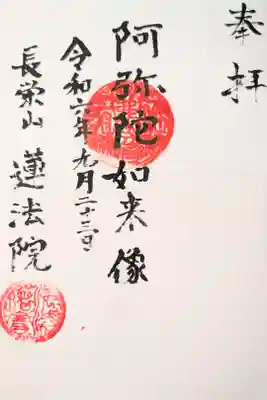 奉拝
阿弥陀如来像
令和六年九月二十三日
長栄山 蓮法院